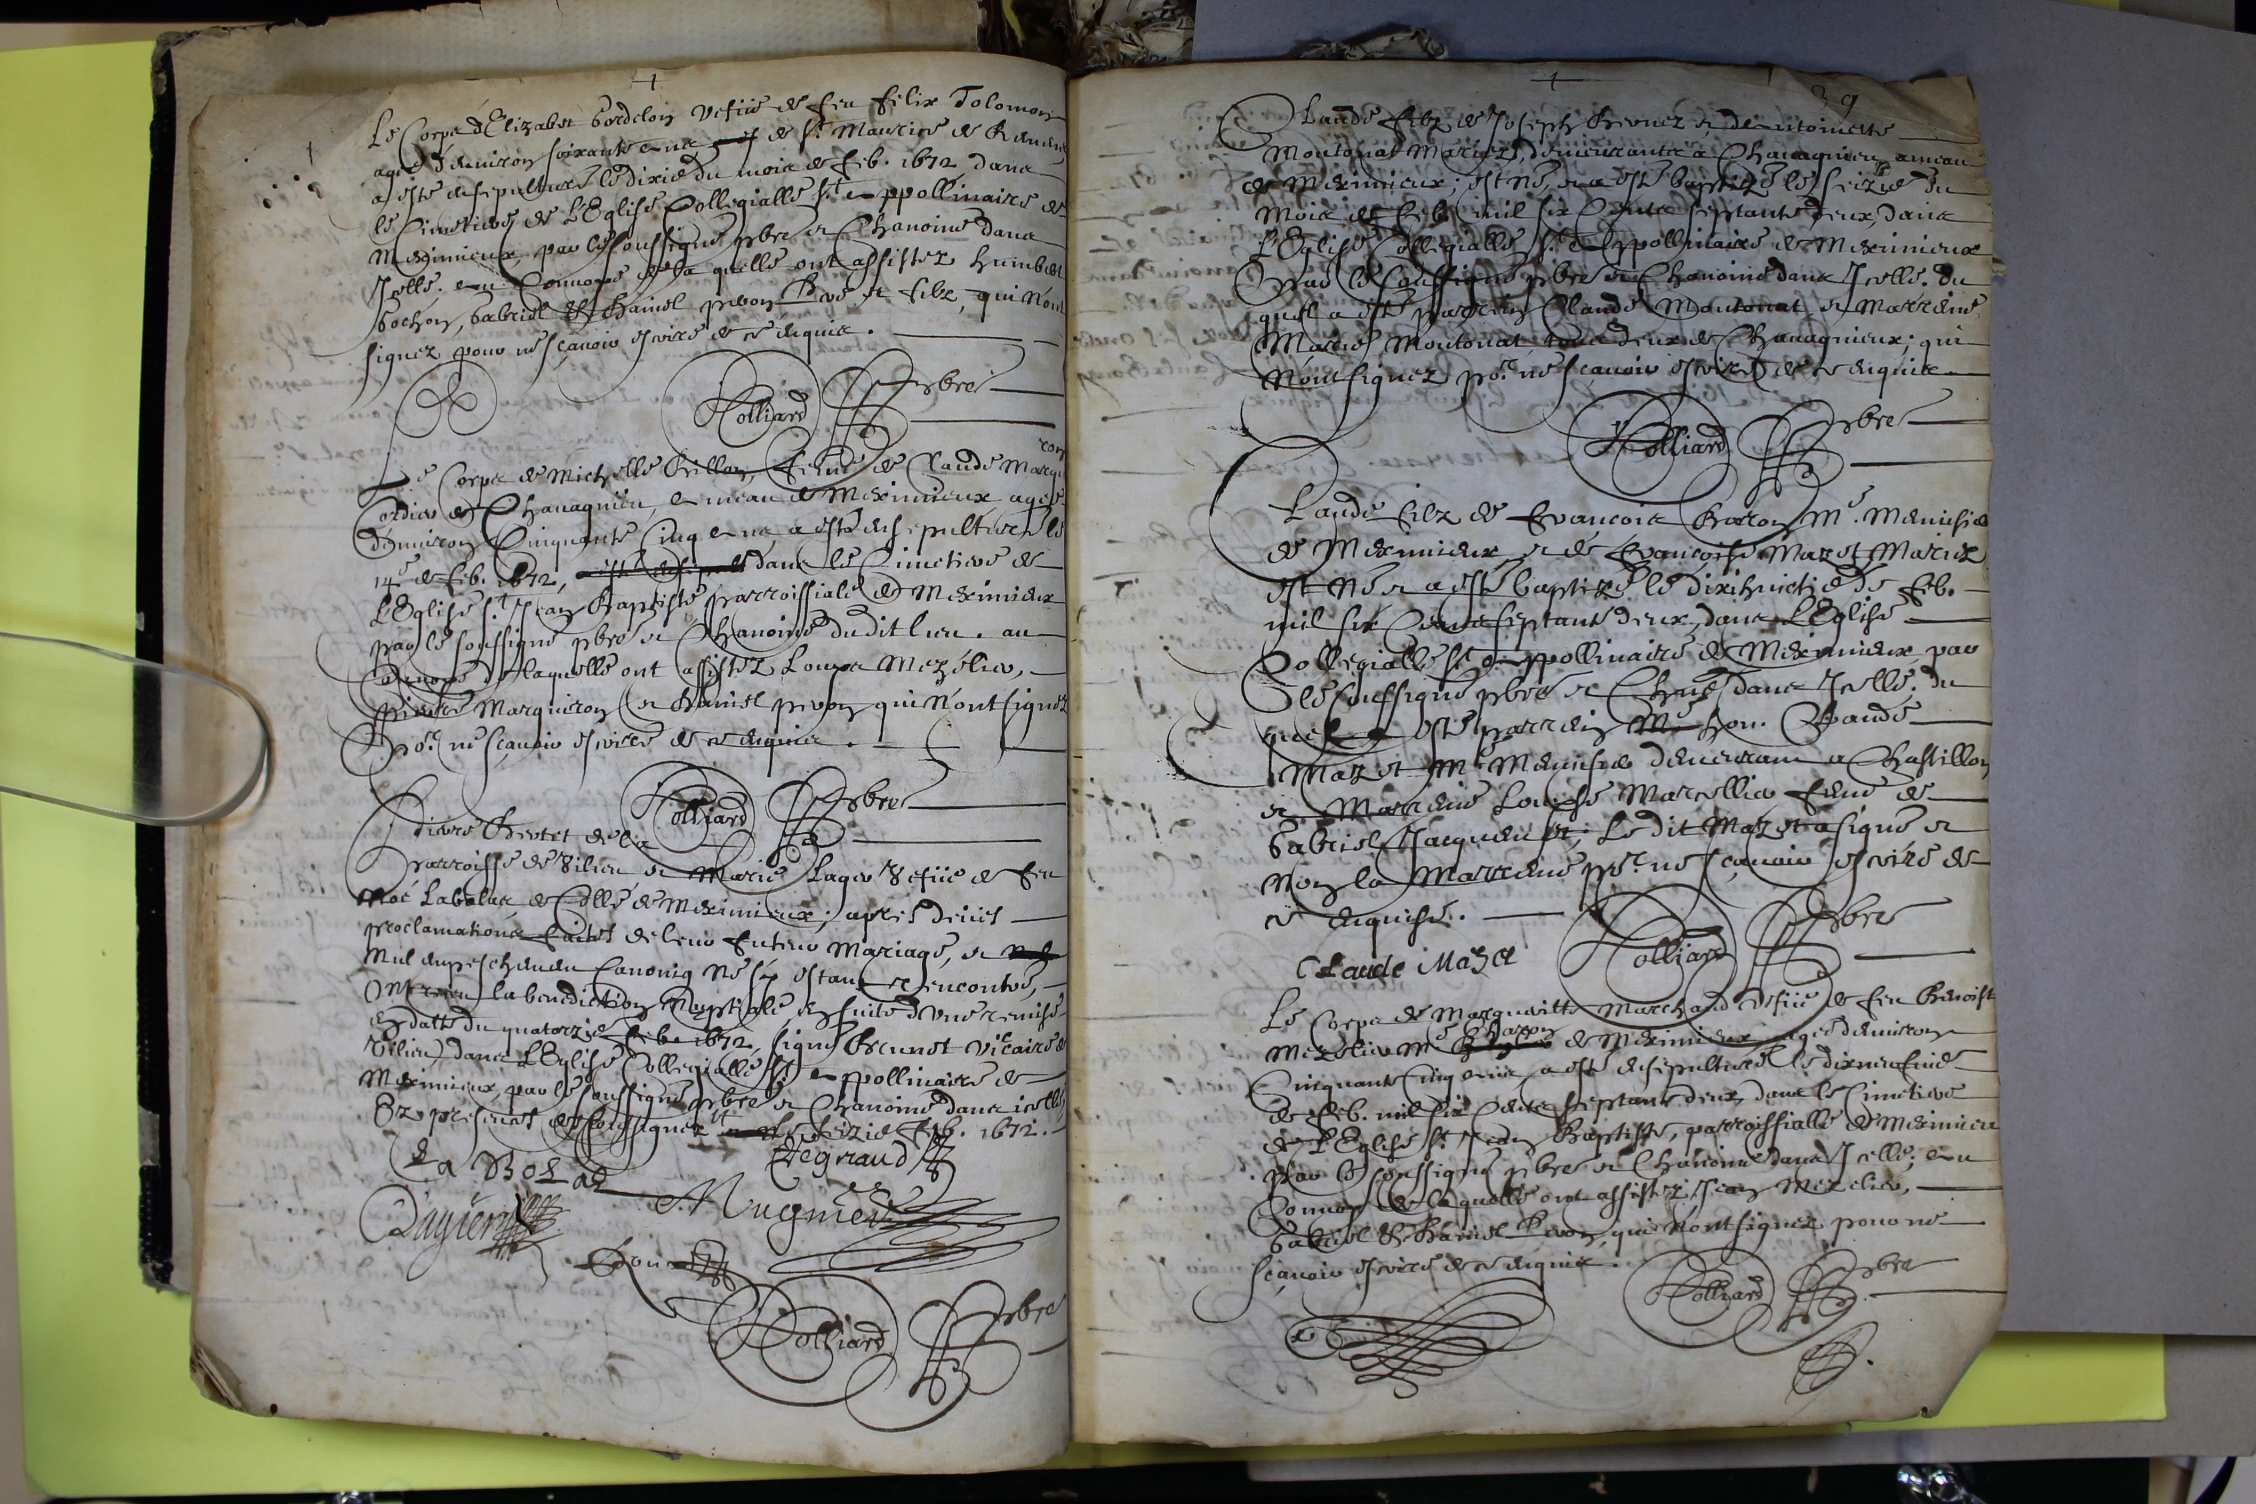 Le Corps d'Elizabet Gordelon vefüe de feu Felix Tolomon
agée d'environ soixante ans de St. Maurice de
a esté ensepulturé le dixie du mois de feb. 1672 dans
le Cimetiere de L'Eglise Collegialle St. Appollinaire de
Meximieux, par le soussigné pbre et Chanoine dans
Icelle. au Convoye de la quelle ont assistez humbert
Bochon, Gabriel et Daniel prvon Pere et filz, qui n'ont
signez pour ne sçavoir escrire de ce enquis.
Rolliard pbre
Le Corps de Michelle Brillon, femme de Claude Marqui
ron
Cordier de Chavagnieu, ameau de Meximieux agée
d'environ Cinquante Cinq ans, a esté ensepulturé le
14e de feb. 1672, dans le Cimetiere de
L'Eglise St. Jean Baptiste parroissiale de Meximieux
par le soussigné pbre et Chanoine du dit lieu. au
Convoye de laquelle ont assistez Louys Mezelier,
Pierre Marquiron et Daniel prvon qui n'ont signez
por. ne sçavoir escrire de ce enquis.
Rolliard pbre
Pierre Bertet de la
Parroisse de Vilieu et Marie Lager vefüe de feu
Noé Labalas de Celle de Meximieux; apres deües
proclamations faites de leur futeur Mariage, et
nul empeschemen Canoniq ne s'y estant rencontré,
Ont receu la benediction Nuptiale ensuite d'une remise
en datte du quatorzie feb. 1672, signé Brunet Vicaire de
Vilieu, dans L'Eglise Collegialle St. Appollinaire de
Meximieux, par le soussigné pbre et Chanoine dans icelle
Ez presences des soussignez le seizie feb. 1672.
La Bolas
Degriaud
Dagier
A. Mugnier
Rolliard pbre
39
Claude filz de Joseph Brevet et d'Antoinette
Moutonat Mariez, demeurants a Chavagnieu, ameau
de Meximieux; est né, et a esté baptizé le seizie du
Mois de feb. mil six Cents septante deux, dans
L'Eglise Collegialle St. Appollinaire de Meximieux
par le soussigné pbre et Chanoine dans Icelle. du
quel a esté parrein Claude Moutonat, et Marreine
Marie Moutonat, tous deux de Chavagnieux; qui
n'ont signez por. ne sçavoir escrire de ce enquis.
Rolliard pbre
Claude filz de François Baron Me. Menusier
de Meximieux et de Françoise Mazet Mariez
est Né et a esté baptizé le dixhuictie de feb.
mil six Cents septante deux, dans L'Eglise
Collegialle St. Appollinaire de Meximieux par
le soussigné pbre et Chne dans Icelle. du
quel a esté parrein hon. Claude
Mazet Me Menusier demeurant a Chastillon
et Marreine Louyse Marcellier femme de
Gabriel Jacquemet; Le dit Mazet a signé et
Non la Marreine por. ne sçavoir escrire de
ce enquise.
Rolliard pbre
Claude Mazet
Le Corps de Margueritte Marchand vefüe de feu Benoist
Mezelier Me Charon de Meximieux agée d'environ
Cinquante Cinq ans a esté ensepulturé le dixneufvie
de feb. mil six Cents septante deux, dans le Cimetiere
de L'Eglise St. Jean Baptiste, parroissialle de Meximieu
par le soussigné pbre et Chanoine dans Icelle; au
Convoy de la quelle ont assistez Jean Mezelier,
Gabriel et Daniel prvon, qui n'ont signez pour ne
sçavoir escrire de ce enquis.
Rolliard pbre